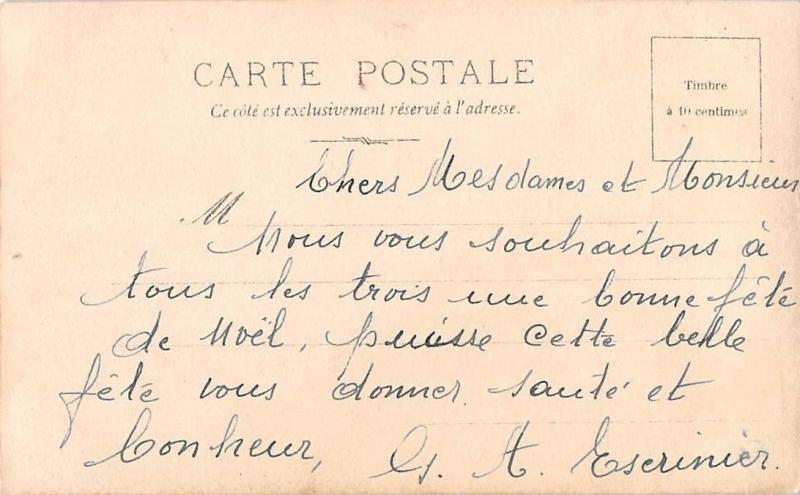 CARTE POSTALE
Ce côté est exclusivement réservé à l'adresse.
Timbre
à 10 centimes
Chers Mesdames et Monsieur
M
Nous vous souhaitons à
tous les trois une bonne fête
de Noël, puisse cette belle
fête vous donner santé et
bonheur, G. A. Escrinier.